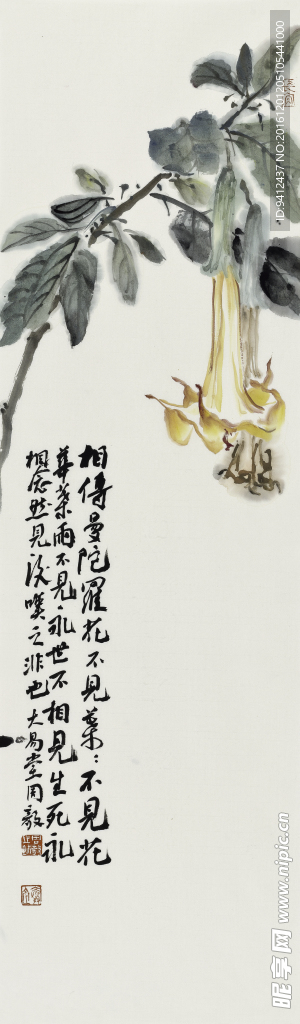 相傳曼陀羅花不見葉々不見花
華葉兩不見々永世不相見生死永
相忘然見後嘆之非也 大易堂周毅
ID:9412437 NO:20161201205105441000
昵享网 www.nipic.cn